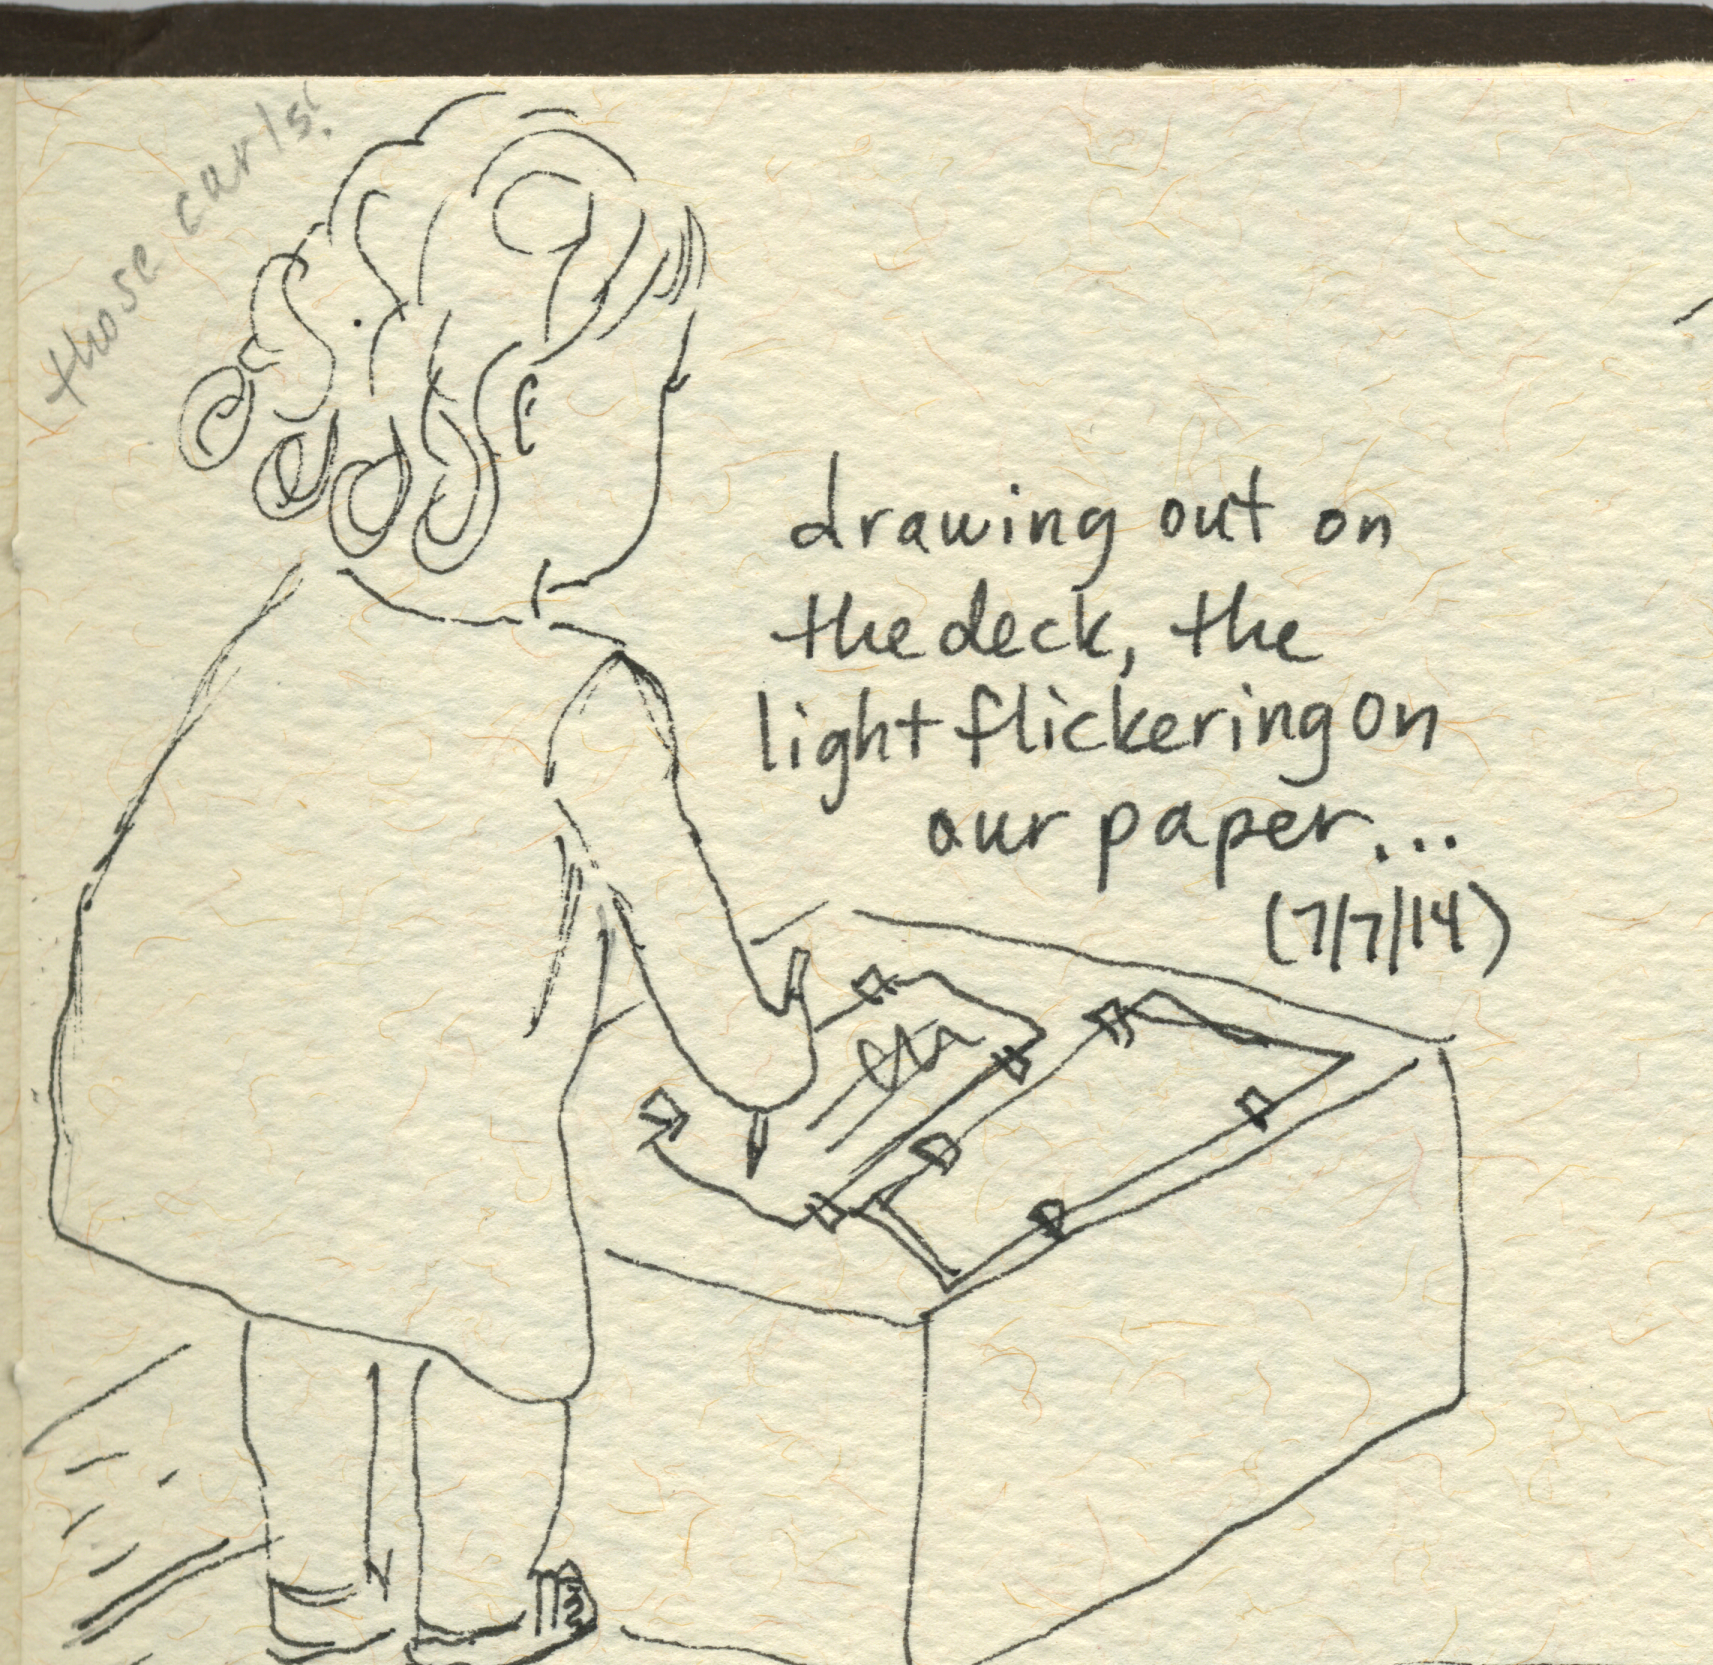 those curls!
drawing out on
the deck, the
light flickering on
our paper...
(7/7/14)